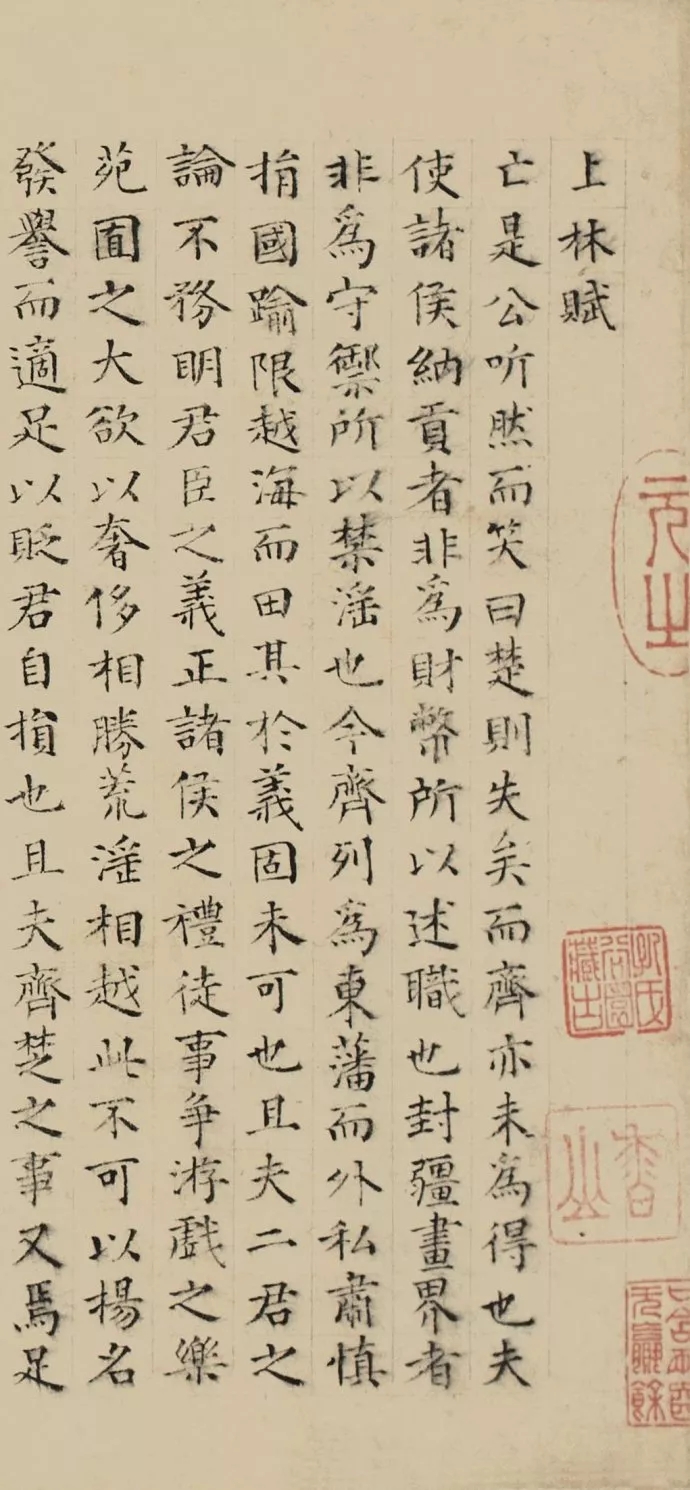 上林賦
亡是公听然而笑曰楚則失矣而齊亦未為得也夫
使諸侯納貢者非爲財幣所以述職也封疆畫界者
非爲守禦所以禁淫也今齊列爲東藩而外私肅慎
捐國踰限越海而田其於義固未可也且夫二君之
論不務明君臣之義正諸侯之禮徒事争游戲之樂
苑囿之大欲以奢侈相勝荒淫相越此不可以楊名
發譽而適足以貶君自損也且夫齊楚之事又焉足